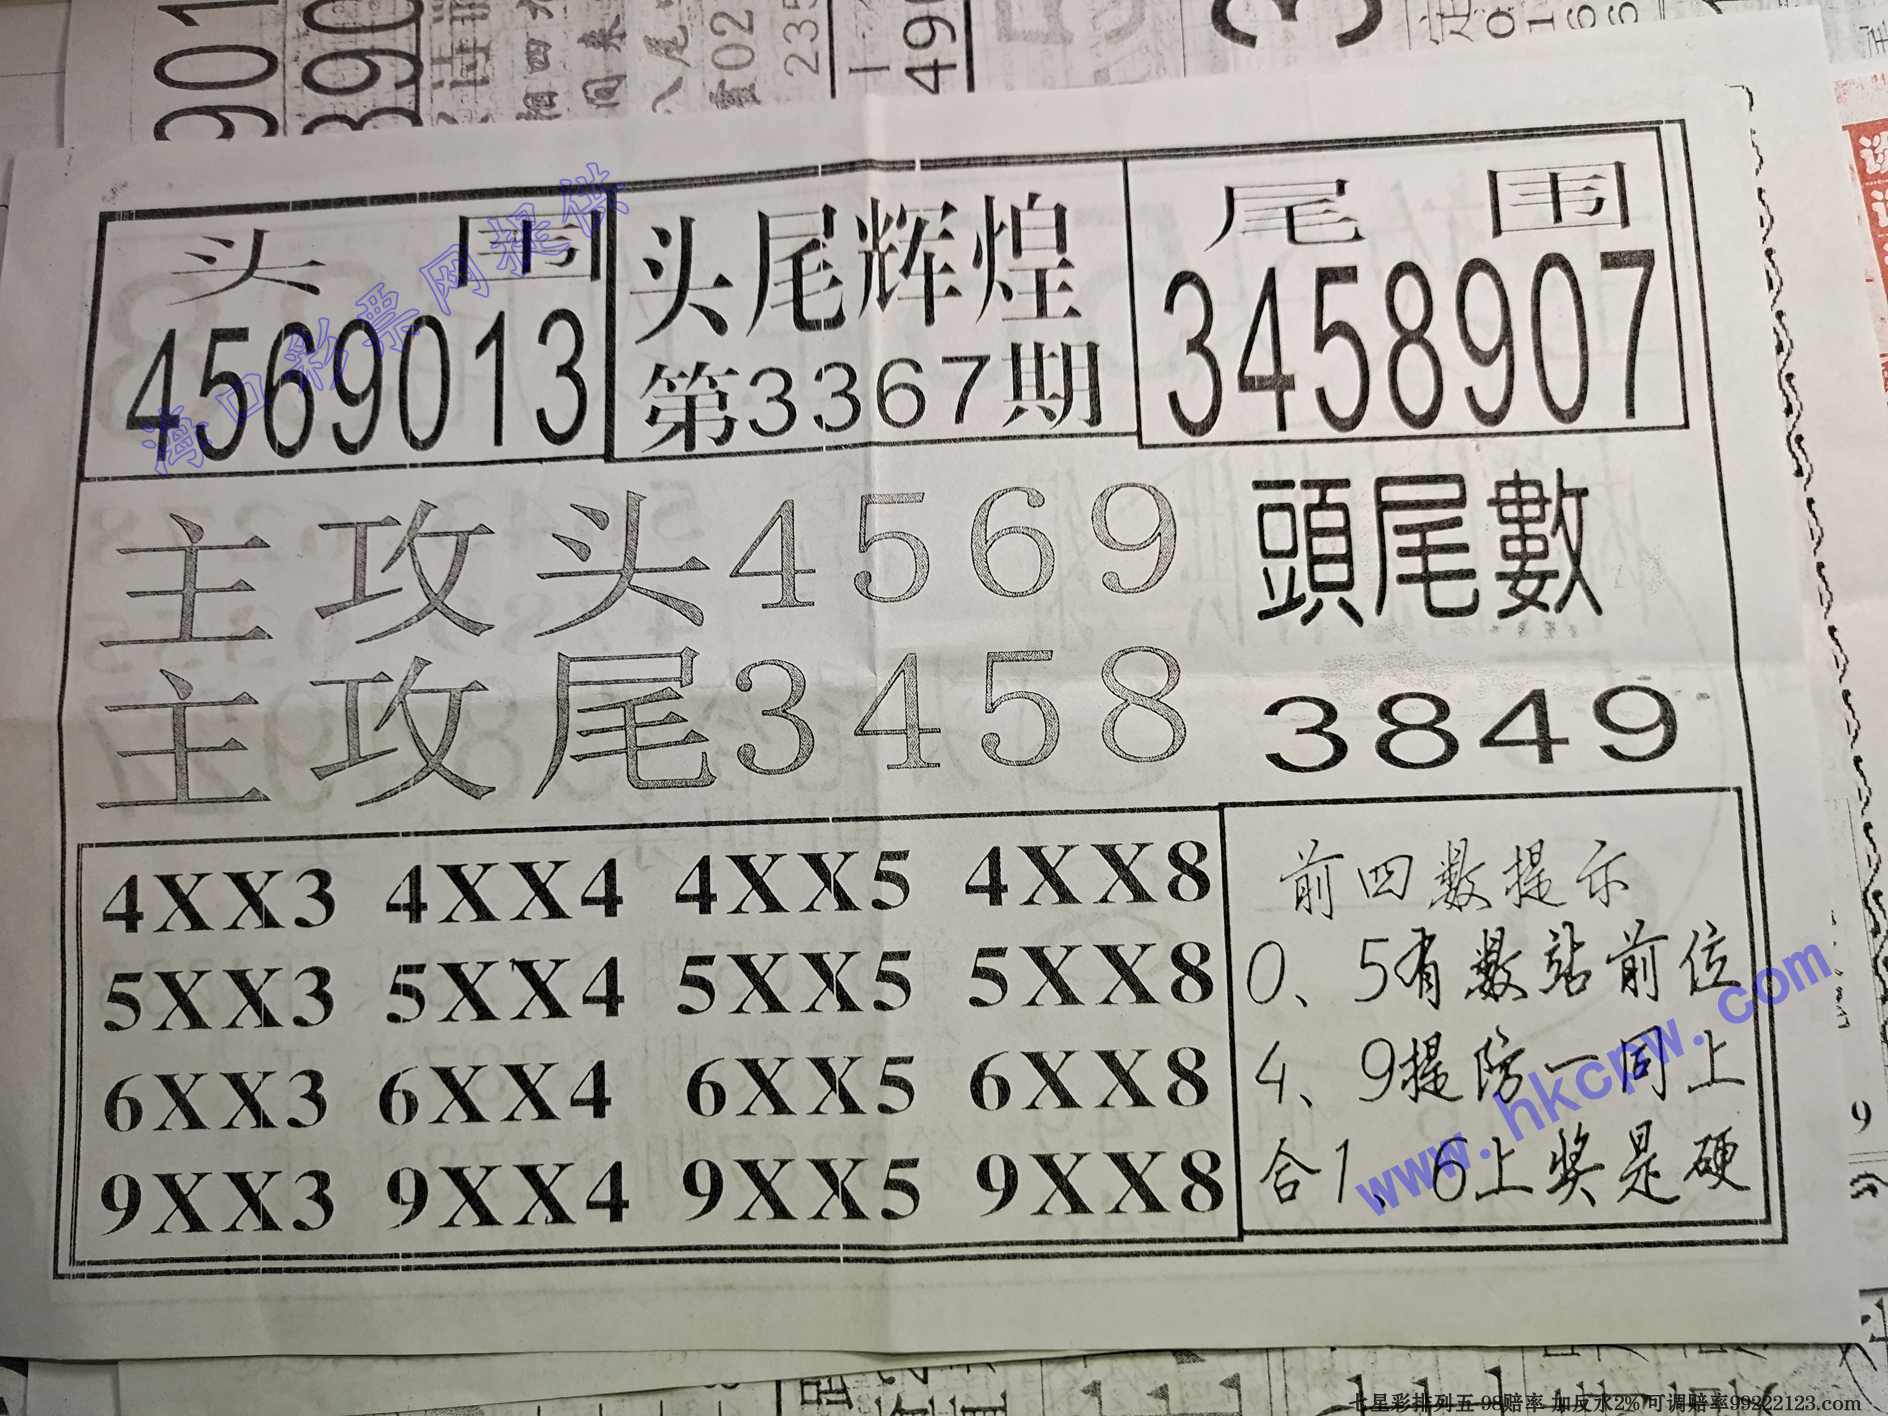 头围
4569013
头尾辉煌
第3367期
尾围
3458907
主攻头4569
主攻尾3458
頭尾數
3849
4XX3 4XX4 4XX5 4XX8
5XX3 5XX4 5XX5 5XX8
6XX3 6XX4 6XX5 6XX8
9XX3 9XX4 9XX5 9XX8
前四数提示
0、5有数站前位
4、9提防一同上
合1、6上奖是硬
海口彩票网提供
www.hkcpw.com
七星彩排列五 98赔率 加反水2%可调赔率99222123.com
901
890
量02
235
490